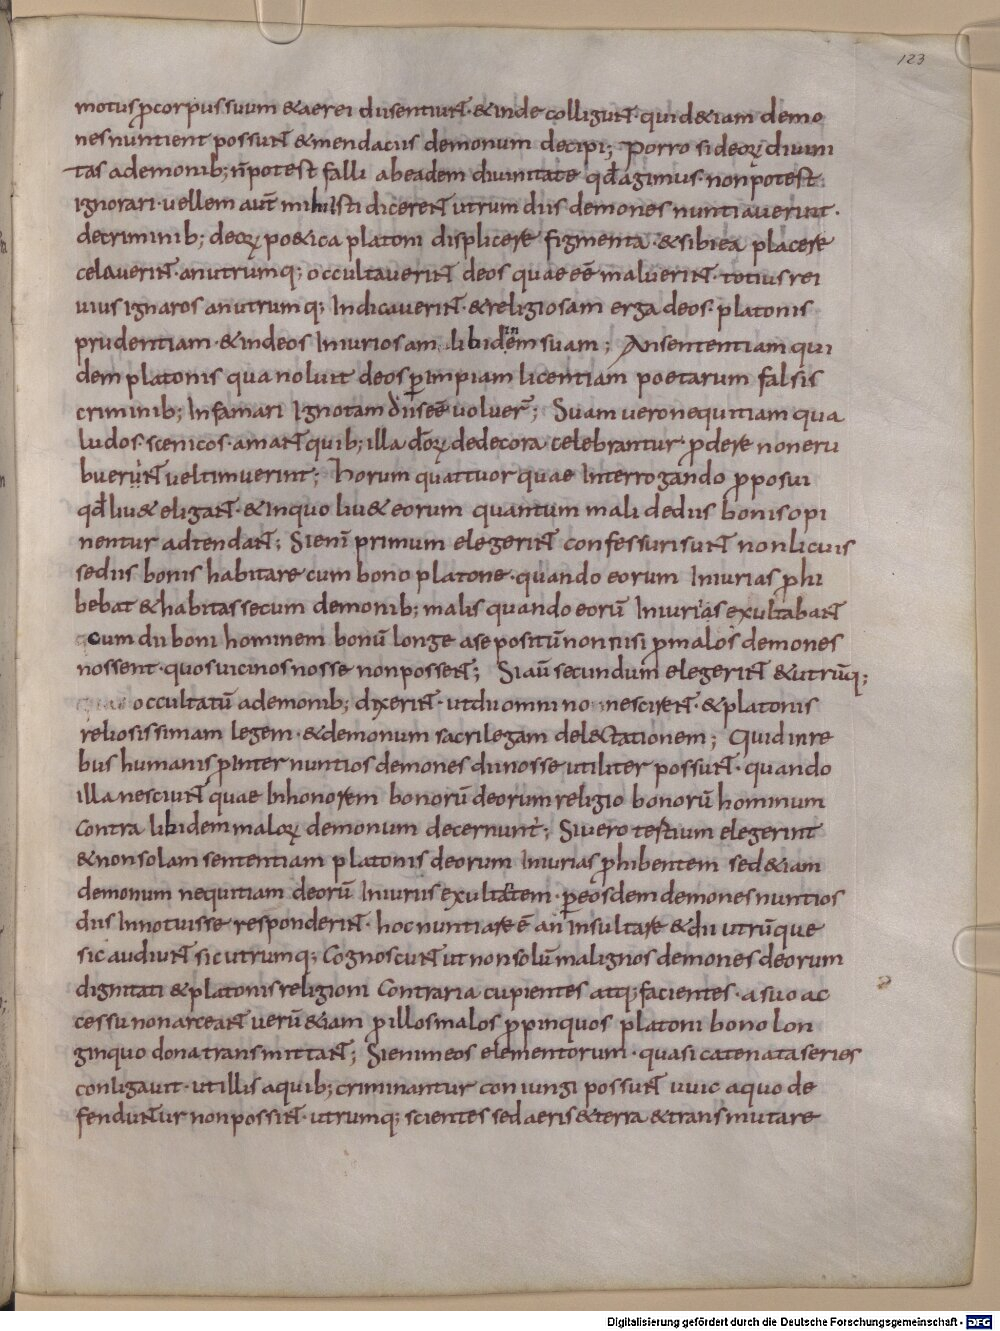 123
motus ꝑ corpus suum & aerei dii sentiunt · & inde colligunt · quid &iam demo
nes nuntient possunt & mendaciis demonum decipi; Porro si deoꝝ diuini
tas a demonib; n̄ potest falli ab eadem diuinitate qđ agimus · non potest
ignorari · uellem aut̄ mihi isti dicerent utrum diis demones nuntiauerint ·
de criminib; deoꝝ po&ica platoni displicere figmenta · & sibi ea placere
celauerint · an utrumq; occultauerint deos quae eē maluerint · totius rei
uius ignaros an utrumq; Indicauerint · & religiosam erga deos · platonis
prudentiam · & in deos Iniuriosam libidinem suam; An sententiam qui
dem platonis qua noluit deos ꝑ Impiam licentiam poetarum falsis
criminib; Infamari Ignotam diis eē uoluer̄; Suam uero nequitiam qua
ludos scenicos · amant quib; illa d̄oꝝ dedecora celebrantur · ꝓdere non eru
buerunt uel timuerint; Horum quattuor quae Interrogando ꝓposui
qđ lib& eligant · & In quo lib& eorum quantum mali de diis bonis opi
nentur adtendant; Si eni primum elegerint confessuri sunt non licuis
se diis bonis habitare cum bono platone · quando eorum Iniurias ꝓhi
bebat & habitasse cum demonib; malis quando eorū Iniurias exultabant
cum dii boni hominem bonū longe a se positū non nisi ꝑ malos demones
nossent · quos uicinos nosse non possent; Si aū secundum elegerint & utrūq;
occultatū a demonib; dixerint · ut dii omnino nescirent · & platonis
reliosissimam legem · & demonum sacrilegam delectationem; Quid in re
bus humanis ꝑ Inter nuntios demones dii nosse utiliter possunt · quando
illa nesciunt quae In honorem bonorū deorum religio bonorū hominum
contra libidem maloꝝ demonum decernunt; Si uero tertium elegerint
& non solam sententiam platonis deorum Iniurias ꝓhibentem sed &iam
demonum nequitiam deorū Iniuriis exultantem · ꝑ eosdem demones nuntios
diis Innotuisse responderint · hoc nuntiare ē an Insultare & dii utrūque
sic audiunt sic utrumq; Cognoscunt ut non solū malignos demones deorum
dignitati & platonis religioni Contraria cupientes atq; facientes · a suo ac
cessu non arceant uerū &iam ꝑ illos malos ꝓpinquos platoni bono lon
ginquo dona transmittant; Si enim eos elementorum · quasi catenata series
conligauit · ut illis a quib; criminantur coniungi possunt uiuic a quo de
fenduntur non possint · utrumq; scientes sed aeris & terra & transmutare
Digitalisierung gefördert durch die Deutsche Forschungsgemeinschaft - DFG